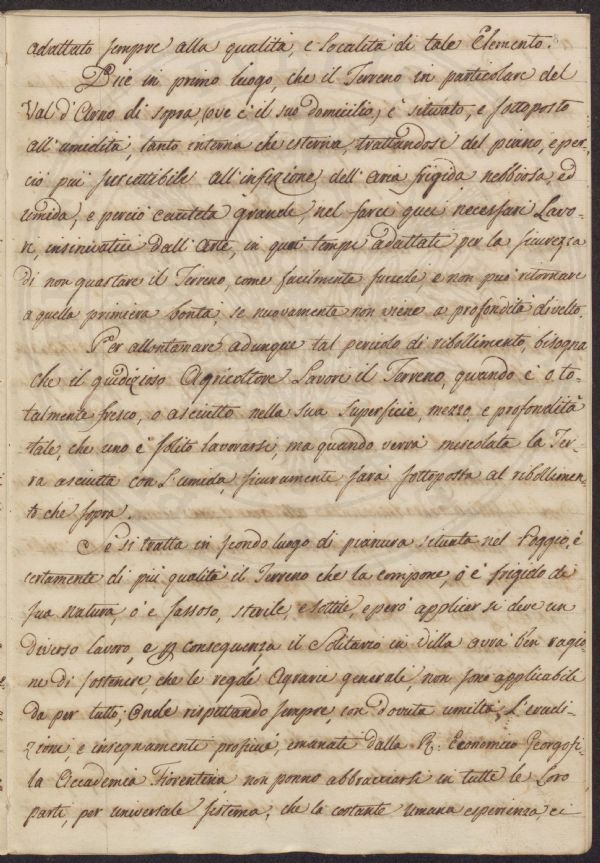 adattato sempre alla qualità, e località di tale Elemento.
Dice in primo luogo, che il Terreno in particolare del
Val d'Arno di sopra, ove è il suo domicilio, è situato, e sottoposto
all'umidità, tanto interna che esterna, trattandosi del piano, e per
ciò più suscettibile all'infezione dell'aria frigida nebbiosa, ed
umida, e perciò cautela grande, nel farci quei necessari Lavo-
ri, insinuatici dall'Arte, in quei tempi adattati per la sicurezza
di non guastare il Terreno, come facilmente succede e non può ritornare
a quella primiera bontà, se nuovamente non viene a profondità divelto.
Per allontanare adunque tal pericolo di ribollimento, bisogna
che il giudizioso Agricoltore Lavori il Terreno, quando è o to-
talmente fresco, o asciutto nella sua superficie, mezzo, e profondità
tale, che uno è solito lavorarsi, ma quando verrà mescolata la Ter-
ra asciutta con l'umida, sicuramente sarà sottoposta al ribollimen-
to che sopra.
Se si tratta in secondo luogo di pianura situata nel Poggio, è
certamente di più qualità il Terreno che la compone, o è frigido di
sua natura, o è sassoso, sterile, e sottile, e però applicar si deve un
diverso lavoro, e p conseguenza il Solitario in Villa avrà ben ragio-
ne di sostenere, che le regole Agrarie generali, non sono applicabili
da per tutto; Onde rispettando sempre, con dovuta umiltà, l'erudi-
zione, e insegnamenti proficui, emanate dalla R. Economico Georgofi-
la Accademia Fiorentina, non ponno abbracciarsi in tutte le Loro
parti, per universale sistema, che la costante umana esperienza, ci